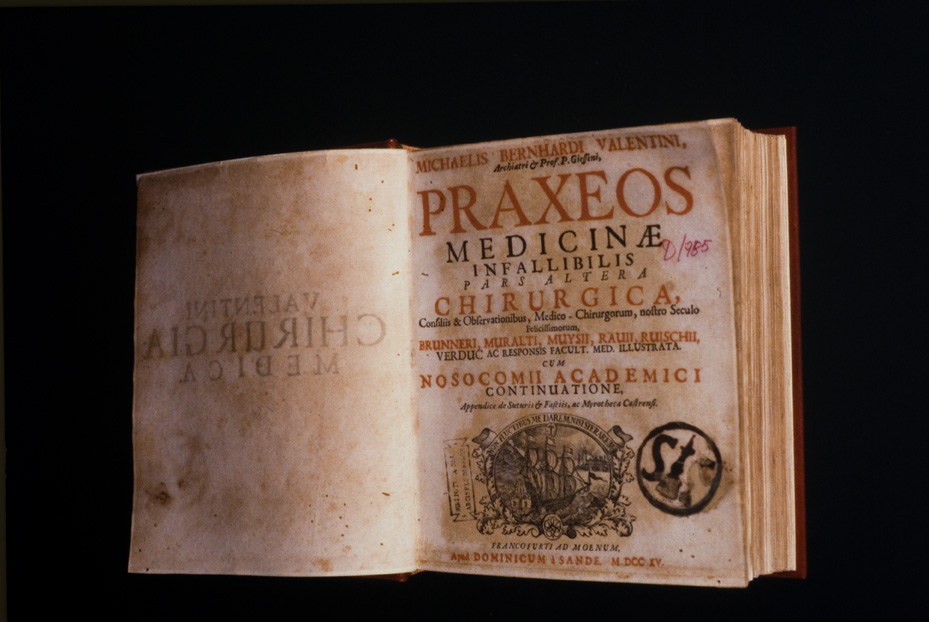 VALENTINI
CHIRURGIA
MEDICA.
MICHAELIS BERNHARDI VALENTINI,
Archiatri & Prof. P. Giesseni,
PRAXEOS
MEDICINÆ
INFALLIBILIS
PARS ALTERA
CHIRURGICA,
Consiliis & Observationibus, Medico-Chirurgorum, nostro Seculo
Felicissimorum,
BRUNNERI, MURALTI, MUYSII, RAUII, RUISCHII,
VERDUC AC RESPONSIS FACULT. MED. ILLUSTRATA.
CUM
NOSOCOMII ACADEMICI
CONTINUATIONE,
Appendice de Suturis & Fasciis, ac Myrotheca Castrensi.
FRANCOFURTI AD MOENUM,
Apud DOMINICUM à SANDE. M.DCC XV.
D/985